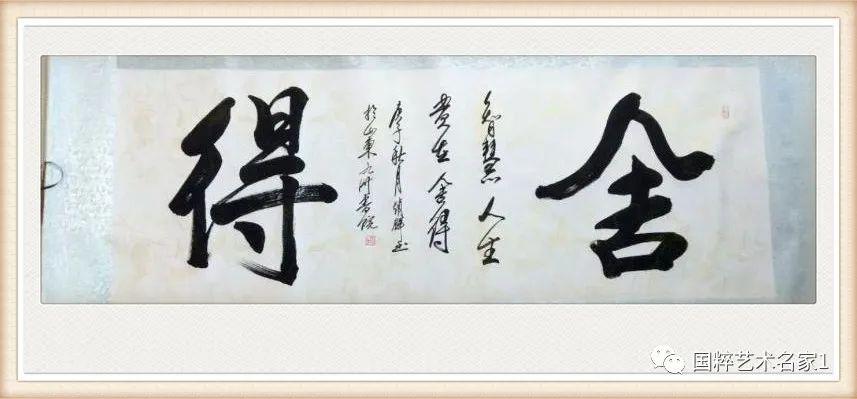 舍
智慧人生
贵在舍得
庚子秋月
於山東九州書院
得
国粹艺术名家1